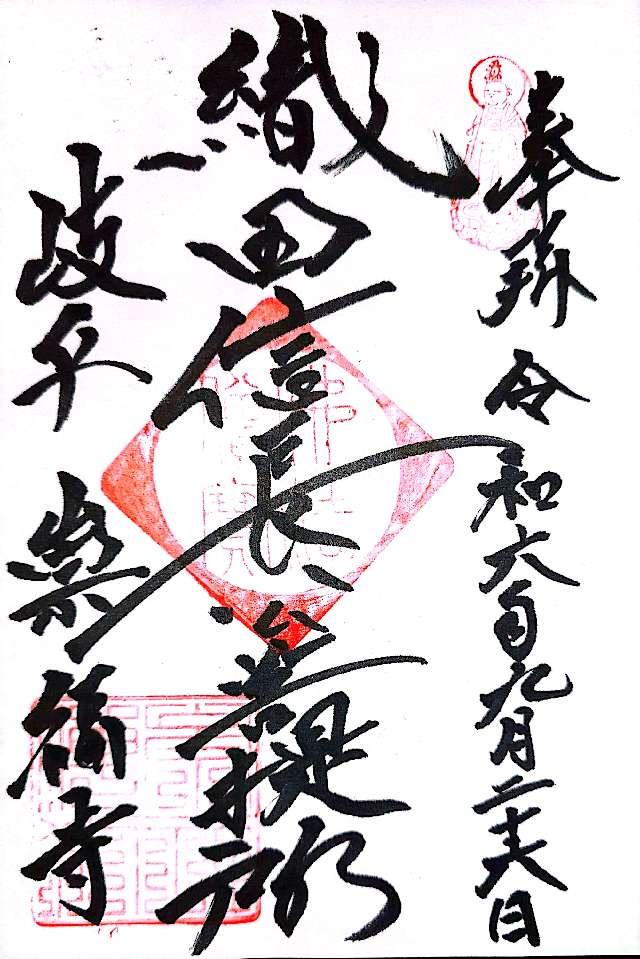 奉拝 令和六年九月二十六日
織田信長公菩提所
岐阜 崇福寺